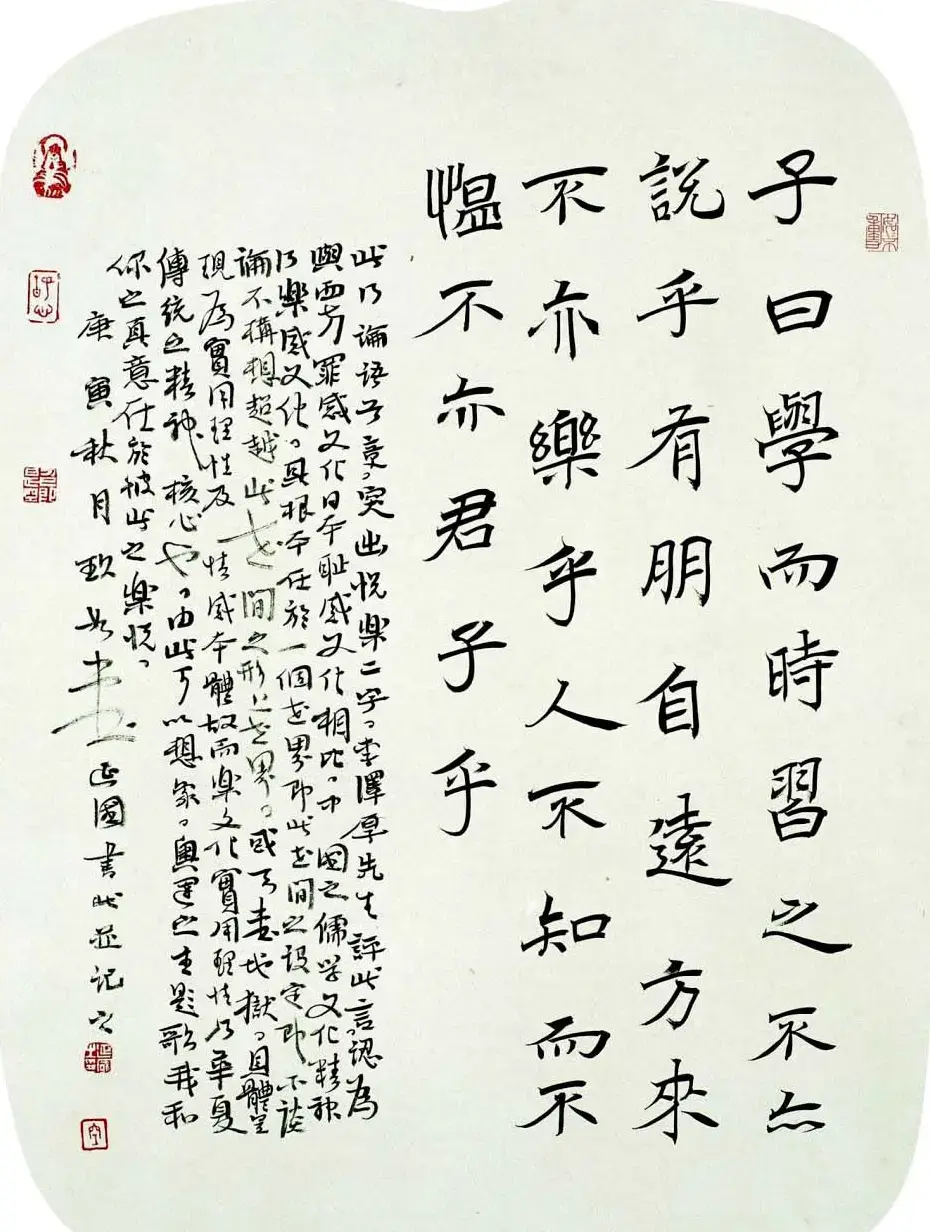 子曰學而時習之不亦
說乎有朋自遠方來
不亦樂乎人不知而不
慍不亦君子乎
此乃論語首章突出悅樂二字李澤厚先生評此言認為
與西方罪感文化日本恥感文化相比中國之儒學文化精神
乃樂感文化其根本在於一個世界即此世間之設定即不談
論不構想超越此世間之形上世界或天堂地獄具體呈
現為實用理性及情感本體故而樂文化實用理性乃華夏
傳統之精神核心也由此可以想象奧運之主題歌我和
你之真意在於彼此之樂悅
庚寅秋月 正國書此並記之